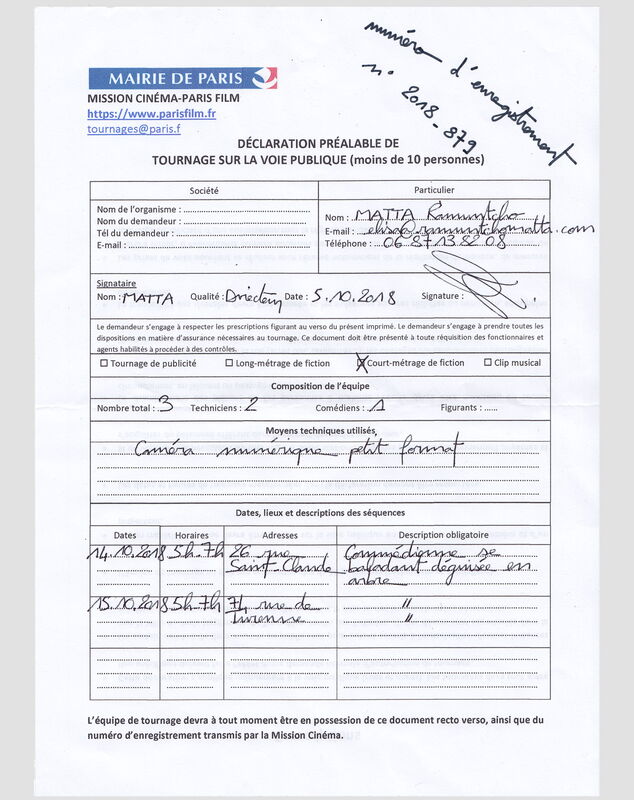 numéro d'enregistrement
n° 2018-879
MAIRIE DE PARIS
MISSION CINÉMA-PARIS FILM
https://www.parisfilm.fr
tournages@paris.f
DÉCLARATION PRÉALABLE DE
TOURNAGE SUR LA VOIE PUBLIQUE (moins de 10 personnes)
Société
Nom de l'organisme :
Nom du demandeur :
Tél du demandeur :
E-mail :
Particulier
Nom : MATTA Ramuntcho
E-mail : elisa@ramuntchomatta.com
Téléphone : 06 87 13 82 08
Signataire
Nom : MATTA Qualité : Directeur Date : 5.10.2018 Signature :
Le demandeur s'engage à respecter les prescriptions figurant au verso du présent imprimé. Le demandeur s'engage à prendre toutes les
dispositions en matière d'assurance nécessaires au tournage. Ce document doit être présenté à toute réquisition des fonctionnaires et
agents habilités à procéder à des contrôles.
☐ Tournage de publicité ☐ Long-métrage de fiction ☒ Court-métrage de fiction ☐ Clip musical
Composition de l'équipe
Nombre total : 3 Techniciens : 2 Comédiens : 1 Figurants : .....
Moyens techniques utilisés,
Caméra numérique petit format
Dates, lieux et descriptions des séquences
Dates Horaires Adresses Description obligatoire
14.10.2018 5h-7h 26 rue Commédienne se
Saint-Claude baladant déguisée en
arbre
15.10.2018 5h-7h 74 rue de "
Turenne "
L'équipe de tournage devra à tout moment être en possession de ce document recto verso, ainsi que du
numéro d'enregistrement transmis par la Mission Cinéma.